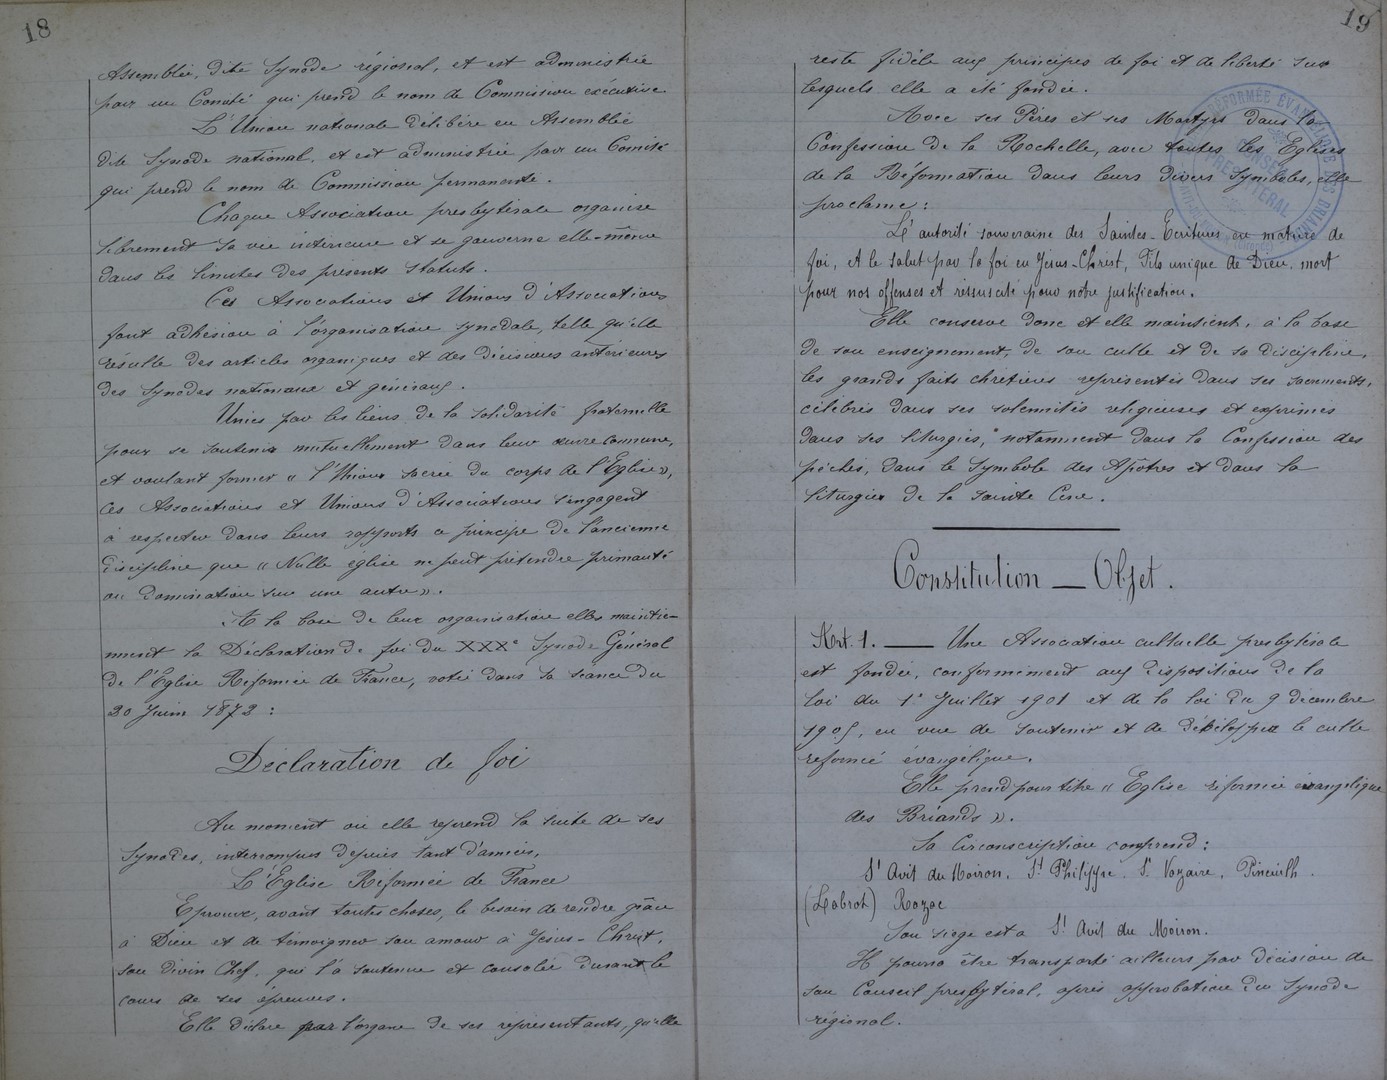 18
Assemblée, dite Synode régional, et est administrée
par un Comité qui prend le nom de Commission exécutive
L'Union nationale délibère en Assemblée
dite Synode national, et est administrée par un Comité
qui prend le nom de Commission permanente.
Chaque Association presbytérale organise
librement sa vie intérieure et se gouverne elle-même
dans les limites des présents statuts.
Ces Associations et Unions d'Associations
font adhésion à l'organisation synodale, telle qu'elle
résulte des articles organiques et des décisions antérieures
des Synodes nationaux et généraux.
Unies par les liens de la solidarité fraternelle
pour se soutenir mutuellement dans leur œuvre commune,
et voulant former « l'Union sacrée du corps de l'Eglise »,
ces Associations et Unions d'Associations s'engagent
à respecter dans leurs rapports ce principe de l'ancienne
discipline que « Nulle église ne peut prétendre primauté
ou domination sur une autre ».
A la base de leur organisation elles maintien-
nent la Déclaration de foi du XXXe Synode Général
de l'Eglise Réformée de France, votée dans sa séance du
20 Juin 1872 :
Déclaration de foi
Au moment où elle reprend la suite de ses
Synodes, interrompus depuis tant d'années,
L'Église Réformée de France
Eprouve, avant toutes choses, le besoin de rendre grâce
à Dieu et de témoigner son amour à Jésus-Christ,
son divin Chef, qui l'a soutenue et consolée durant le
cours de ses épreuves.
Elle déclare par l'organe de ses représentants, qu'elle
19
reste fidèle aux principes de foi et de liberté sur
lesquels elle a été fondée.
Avec ses Pères et ses Martyrs dans la
Confession de la Rochelle, avec toutes les Eglises
de la Réformation dans leurs divers Symboles, elle
proclame :
L'autorité souveraine des Saintes-Ecritures en matière de
foi, et le salut par la foi en Jésus-Christ, Fils unique de Dieu, mort
pour nos offenses et ressuscité pour notre justification.
Elle conserve donc et elle maintient, à la base
de son enseignement, de son culte et de sa discipline,
les grands faits chrétiens représentés dans ses sacrements,
célébrés dans ses solennités religieuses et exprimés
dans ses liturgies, notamment dans la Confession des
péchés, dans le Symbole des Apôtres et dans la
liturgie de la sainte Cène.
Constitution — Objet.
Art. 1. — Une Association cultuelle presbytérale
est fondée, conformément aux dispositions de la
loi du 1er Juillet 1901 et de la loi du 9 décembre
1905, en vue de soutenir et de développer le culte
réformé évangélique.
Elle prend pour titre « Eglise réformée évangélique
des Briands ».
Sa Circonscription comprend :
St Avit du Moiron, St Philippe, St Nazaire, Pineuilh.
(Labrot) Razac
Son siège est à St Avit du Moiron.
Il pourra être transporté ailleurs par décision de
son Conseil presbytéral, après approbation du Synode
régional.
RÉFORMÉE ÉVANGÉLIQUE DES BRIANDS
CONSEIL
PRESBYTÉRAL